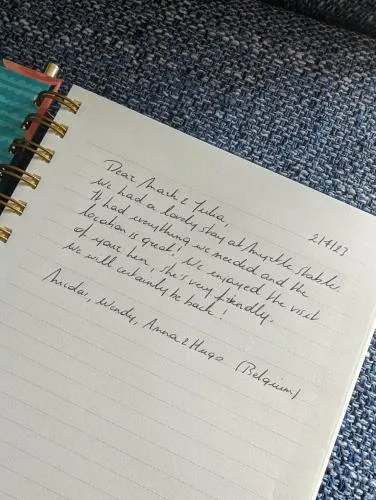 2/4/23
Dear Mark & Julia,
We had a lovely stay at Myrtle stable.
It had everything we needed and the
location is great! We enjoyed the visit
of your hen, she's very friendly.
We will certainly be back!
Wendy, Anna & Hugo (Belgium)